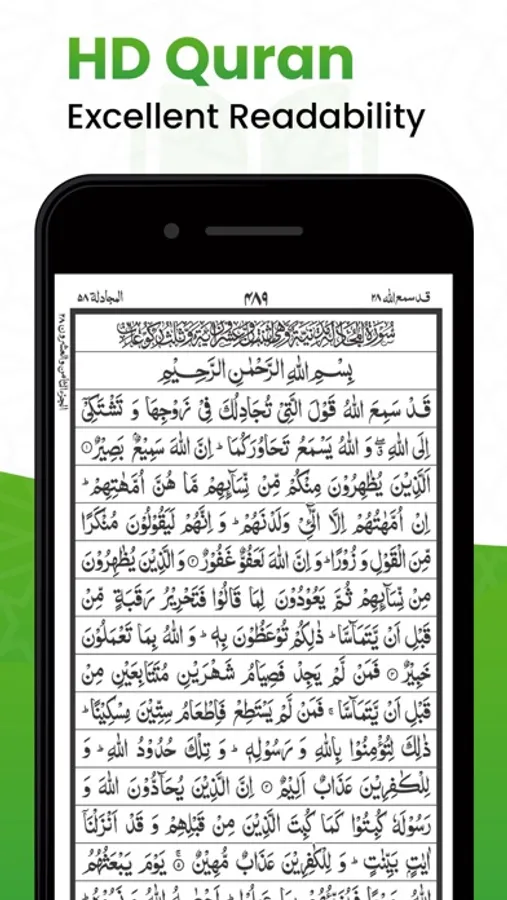 HD Quran
Excellent Readability
قد سمع الله ٢٨ ۴۸۹ المجادلة ۵۸
الجزء الثامن والعشرون ٢٨
بِسْمِ اللهِ الرَّحْمٰنِ الرَّحِيْمِ
قَدْ سَمِعَ اللهُ قَوْلَ الَّتِيْ تُجَادِلُكَ فِيْ زَوْجِهَا وَ تَشْتَكِيْۤ
اِلَى اللهِ ۖۗ وَ اللهُ يَسْمَعُ تَحَاوُرَكُمَا ؕ اِنَّ اللهَ سَمِيْعٌۢ بَصِيْرٌ ۝۱
اَلَّذِيْنَ يُظٰهِرُوْنَ مِنْكُمْ مِّنْ نِّسَآىِٕهِمْ مَّا هُنَّ اُمَّهٰتِهِمْ ؕ
اِنْ اُمَّهٰتُهُمْ اِلَّا الّٰٓـِٔيْ وَلَدْنَهُمْ ؕ وَ اِنَّهُمْ لَيَقُوْلُوْنَ مُنْكَرًا
مِّنَ الْقَوْلِ وَ زُوْرًا ؕ وَ اِنَّ اللهَ لَعَفُوٌّ غَفُوْرٌ ۝۲ وَ الَّذِيْنَ يُظٰهِرُوْنَ
مِنْ نِّسَآىِٕهِمْ ثُمَّ يَعُوْدُوْنَ لِمَا قَالُوْا فَتَحْرِيْرُ رَقَبَةٍ مِّنْ
قَبْلِ اَنْ يَّتَمَآسَّا ؕ ذٰلِكُمْ تُوْعَظُوْنَ بِهٖ ؕ وَ اللهُ بِمَا تَعْمَلُوْنَ
خَبِيْرٌ ۝۳ فَمَنْ لَّمْ يَجِدْ فَصِيَامُ شَهْرَيْنِ مُتَتَابِعَيْنِ مِنْ
قَبْلِ اَنْ يَّتَمَآسَّا ۚ فَمَنْ لَّمْ يَسْتَطِعْ فَاِطْعَامُ سِتِّيْنَ مِسْكِيْنًا ؕ
ذٰلِكَ لِتُؤْمِنُوْا بِاللهِ وَ رَسُوْلِهٖ ؕ وَ تِلْكَ حُدُوْدُ اللهِ ؕ وَ
لِلْكٰفِرِيْنَ عَذَابٌ اَلِيْمٌ ۝۴ اِنَّ الَّذِيْنَ يُحَآدُّوْنَ اللهَ وَ
رَسُوْلَهٗ كُبِتُوْا كَمَا كُبِتَ الَّذِيْنَ مِنْ قَبْلِهِمْ وَ قَدْ اَنْزَلْنَاۤ
اٰيٰتٍۭ بَيِّنٰتٍ ؕ وَ لِلْكٰفِرِيْنَ عَذَابٌ مُّهِيْنٌ ۝۵ يَوْمَ يَبْعَثُهُمُ